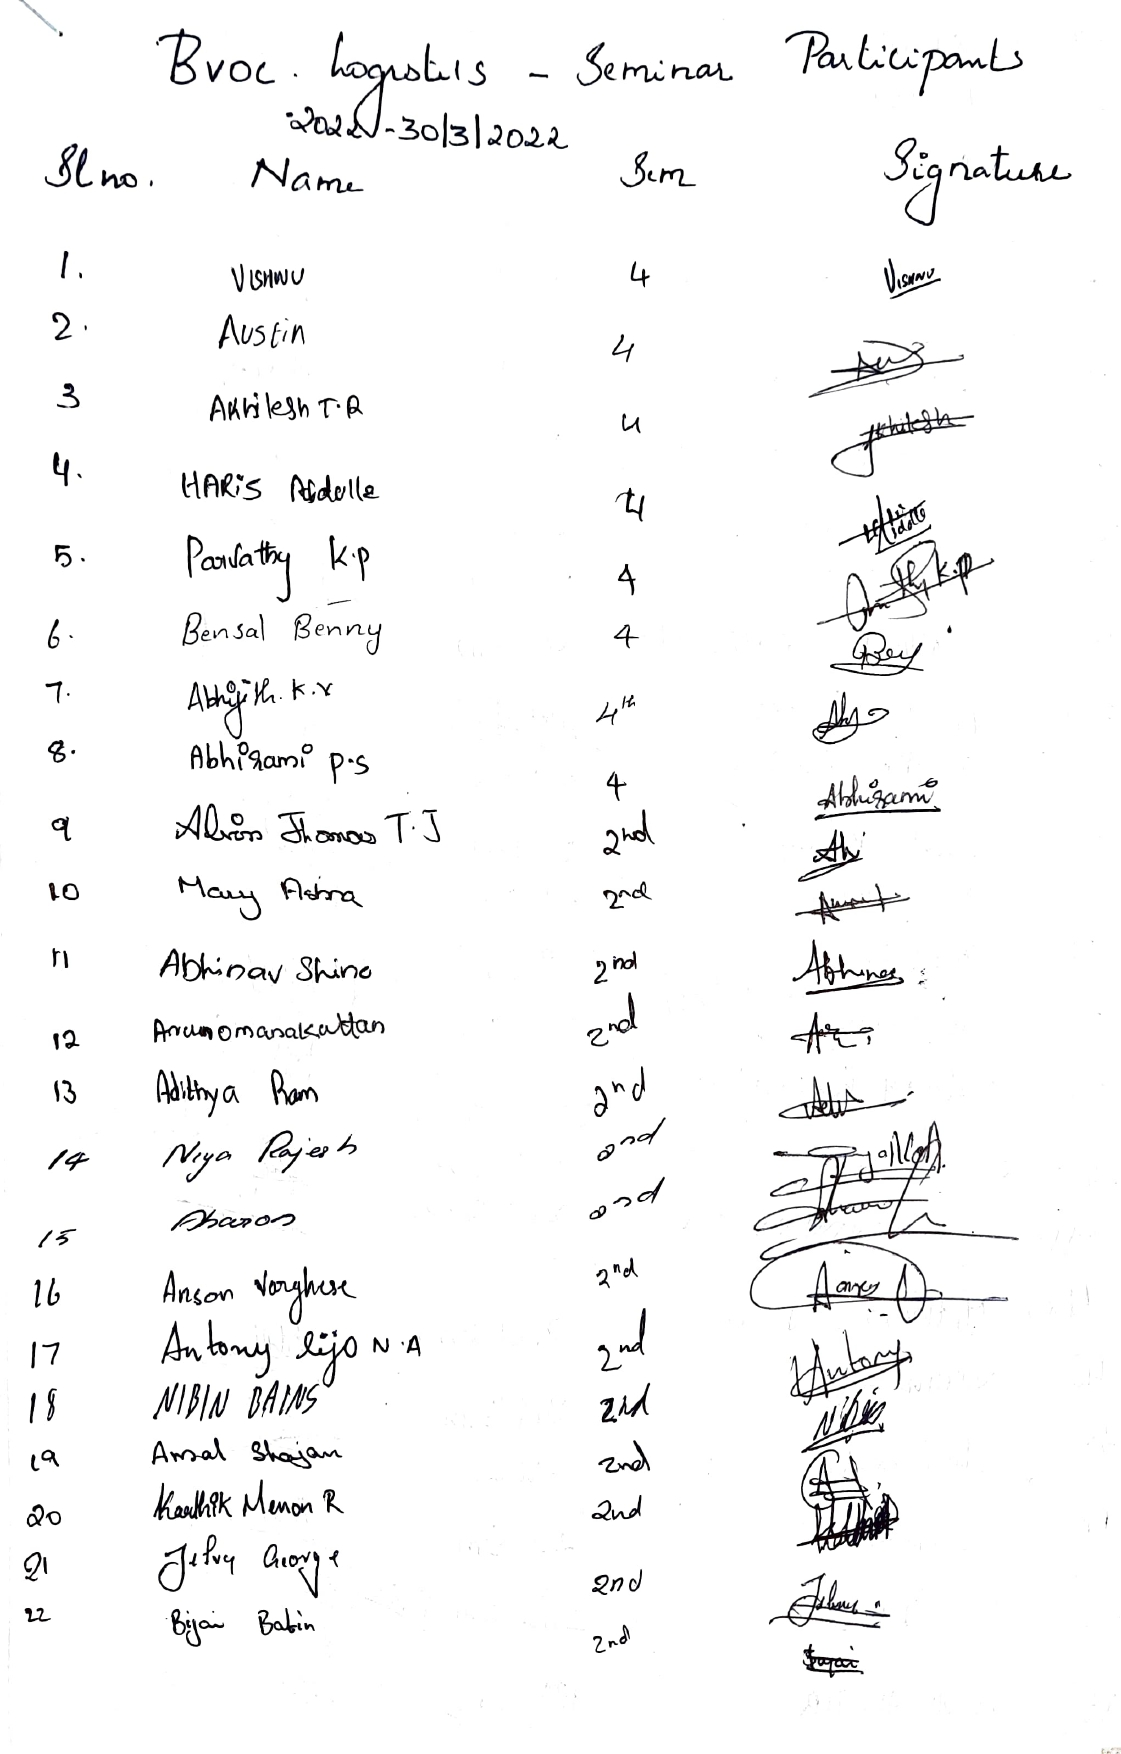 Bvoc. Logistics - Seminar Participants
2022 - 30/3/2022
Sl no. Name Sem Signature
1. VISHNU 4 VISHNU
2. Austin 4
3 Akhilesh T.R 4 Akhilesh
4. HARIS Abdulla 4
5. Parvathy K.P 4 K.P
6. Bensal Benny 4
7. Abhijith. K.V 4th
8. Abhirami P.S 4 Abhirami
9 Alvin Thomas T.J 2nd
10 Mary Ashna 2nd
11 Abhinav Shine 2nd Abhinav
12 2nd
13 Adithya Ram 2nd
14 Niya Rajesh 2nd
15 2nd
16 Anson Varghese 2nd
17 Antony Lijo N.A 2nd Antony
18 NIBIN BAINS 2nd Nibin
19 Ansal Shajan 2nd
20 Karthik Menon R 2nd
21 George 2nd
22 Bijai Babin 2nd